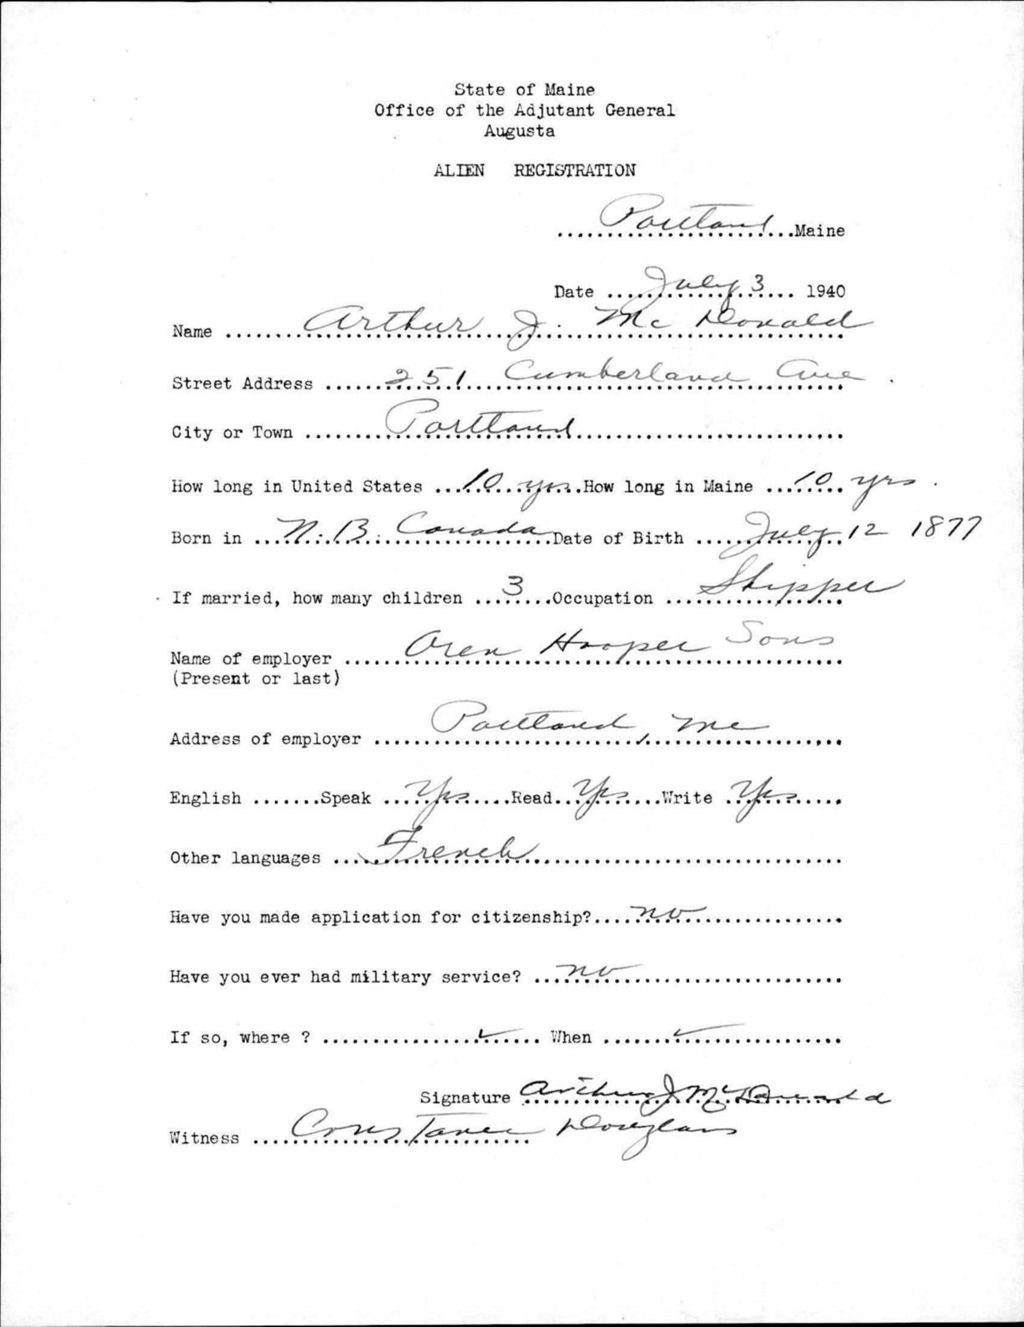 State of Maine
Office of the Adjutant General
Augusta
ALIEN REGISTRATION
Portland Maine
Date July 3 1940
Name Arthur J. Mc Donald
Street Address 251 Cumberland Ave
City or Town Portland
How long in United States 10 yrs. How long in Maine 10 yrs.
Born in N.B. Canada Date of Birth July 12 1877
If married, how many children 3 Occupation Shipper
Name of employer Oren Hooper Sons
(Present or last)
Address of employer Portland, Me
English Speak Yes Read Yes Write Yes
Other languages French
Have you made application for citizenship? no
Have you ever had military service? no
If so, where ? ✓ When ✓
Signature Arthur J McDonald
Witness Constance Douglass